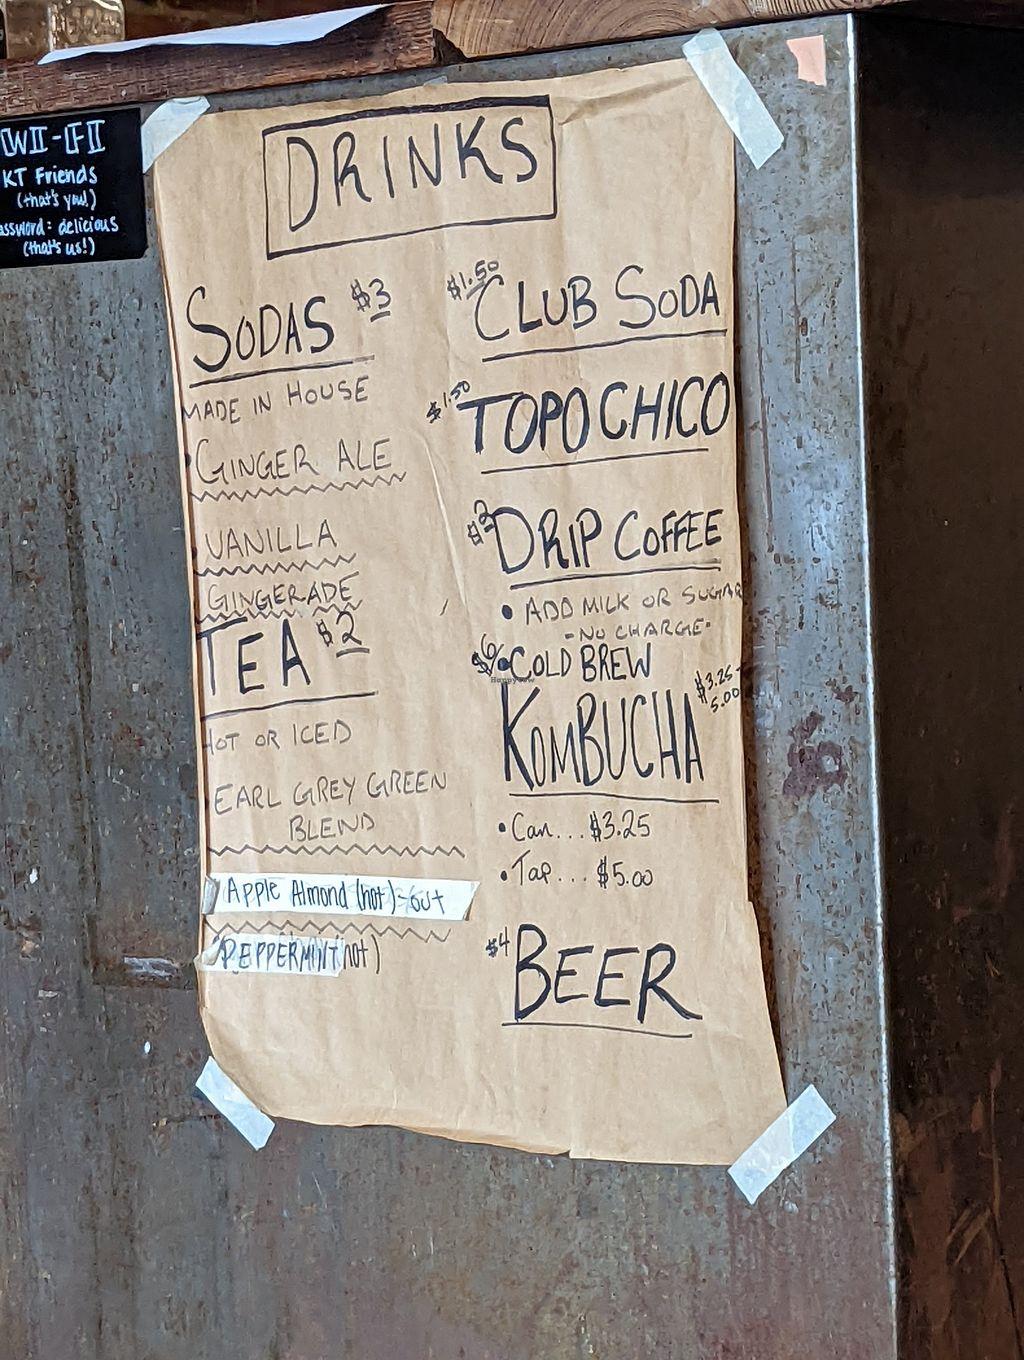 WI-FI
KT Friends
(that's you!)
assword: delicious
(that's us!)
DRINKS
SODAS $3
MADE IN HOUSE
• GINGER ALE
• VANILLA
GINGERADE
TEA $2
HOT OR ICED
EARL GREY GREEN
BLEND
Apple Almond (hot) - out
PEPPERMINT (hot)
$1.50 CLUB SODA
$1.50 TOPO CHICO
$2 DRIP COFFEE
• ADD MILK OR SUGAR
- NO CHARGE -
$6 • COLD BREW
KOMBUCHA $3.25 -
5.00
• Can... $3.25
• Tap.... $5.00
$4 BEER
HappyCow